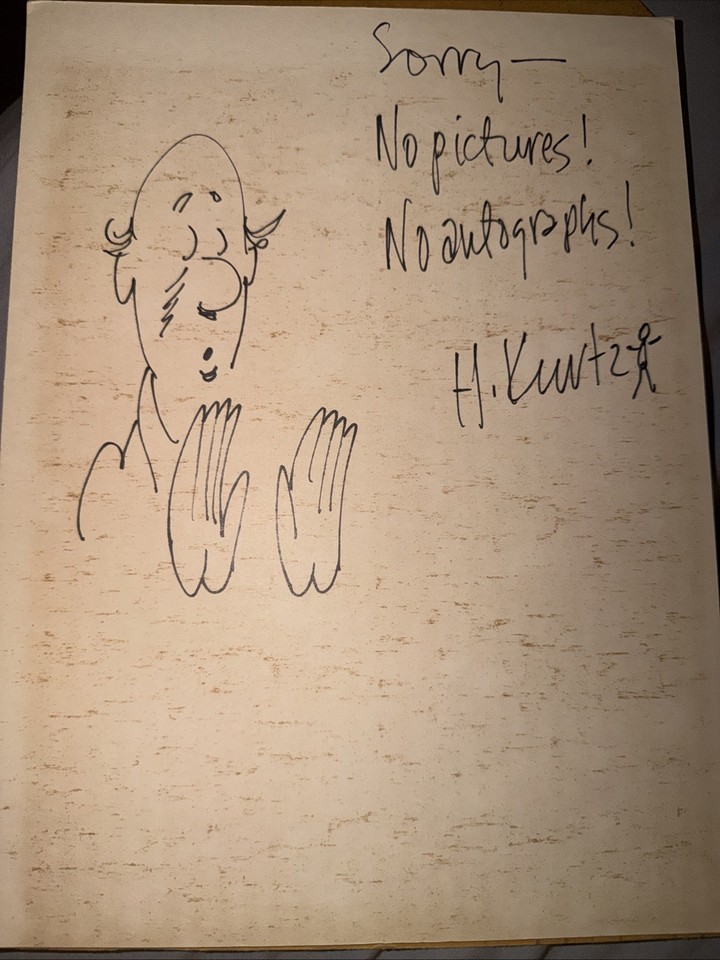 Sorry—
No pictures!
No autographs!
H. Kurtz